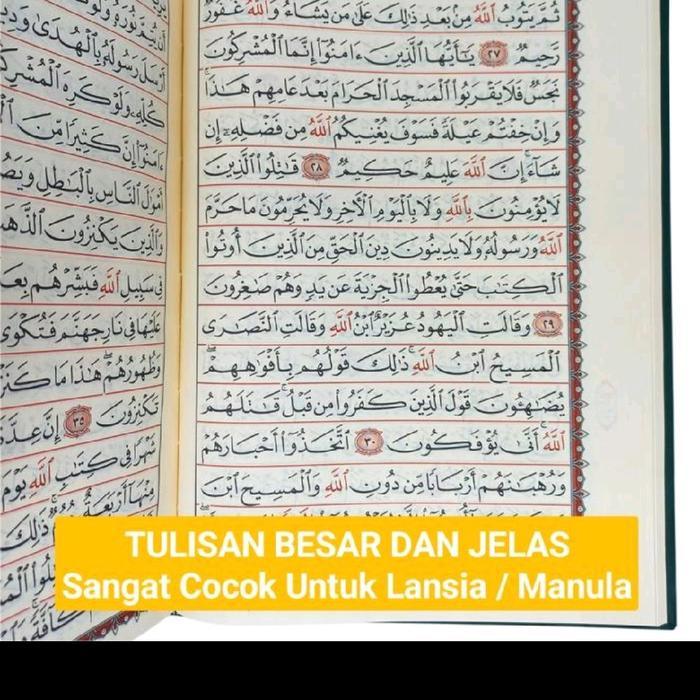 ثُمَّ يَتُوبُ ٱللَّهُ مِنۢ بَعْدِ ذَٰلِكَ عَلَىٰ مَن يَشَآءُ وَٱللَّهُ غَفُورٌ
رَّحِيمٌ ٢٧ يَٰٓأَيُّهَا ٱلَّذِينَ ءَامَنُوٓا۟ إِنَّمَا ٱلْمُشْرِكُونَ
نَجَسٌ فَلَا يَقْرَبُوا۟ ٱلْمَسْجِدَ ٱلْحَرَامَ بَعْدَ عَامِهِمْ هَٰذَا
وَإِنْ خِفْتُمْ عَيْلَةً فَسَوْفَ يُغْنِيكُمُ ٱللَّهُ مِن فَضْلِهِۦٓ إِن
شَآءَ إِنَّ ٱللَّهَ عَلِيمٌ حَكِيمٌ ٢٨ قَٰتِلُوا۟ ٱلَّذِينَ
لَا يُؤْمِنُونَ بِٱللَّهِ وَلَا بِٱلْيَوْمِ ٱلْءَاخِرِ وَلَا يُحَرِّمُونَ مَا حَرَّمَ
ٱللَّهُ وَرَسُولُهُۥ وَلَا يَدِينُونَ دِينَ ٱلْحَقِّ مِنَ ٱلَّذِينَ أُوتُوا۟
ٱلْكِتَٰبَ حَتَّىٰ يُعْطُوا۟ ٱلْجِزْيَةَ عَن يَدٍ وَهُمْ صَٰغِرُونَ
٢٩ وَقَالَتِ ٱلْيَهُودُ عُزَيْرٌ ٱبْنُ ٱللَّهِ وَقَالَتِ ٱلنَّصَٰرَى
ٱلْمَسِيحُ ٱبْنُ ٱللَّهِ ذَٰلِكَ قَوْلُهُم بِأَفْوَٰهِهِمْ
يُضَٰهِـُٔونَ قَوْلَ ٱلَّذِينَ كَفَرُوا۟ مِن قَبْلُ قَٰتَلَهُمُ
ٱللَّهُ أَنَّىٰ يُؤْفَكُونَ ٣٠ ٱتَّخَذُوٓا۟ أَحْبَارَهُمْ
وَرُهْبَٰنَهُمْ أَرْبَابًا مِّن دُونِ ٱللَّهِ وَٱلْمَسِيحَ ٱبْنَ
أَرْسَلَ رَسُولَهُۥ بِٱلْهُدَىٰ
كُلِّهِۦ وَلَوْ كَرِهَ ٱلْمُشْرِكُونَ
ءَامَنُوٓا۟ إِنَّ كَثِيرًا مِّنَ
أَمْوَٰلَ ٱلنَّاسِ بِٱلْبَٰطِلِ
وَٱلَّذِينَ يَكْنِزُونَ ٱلذَّهَبَ
فِى سَبِيلِ ٱللَّهِ فَبَشِّرْهُم
عَلَيْهَا فِى نَارِ جَهَنَّمَ فَتُكْوَىٰ
وَظُهُورُهُمْ هَٰذَا مَا
تَكْنِزُونَ ٣٥ إِنَّ عِدَّةَ
شَهْرًا فِى كِتَٰبِ ٱللَّهِ يَوْمَ
مِنْهَآ أَرْبَعَةٌ
TULISAN BESAR DAN JELAS
Sangat Cocok Untuk Lansia / Manula